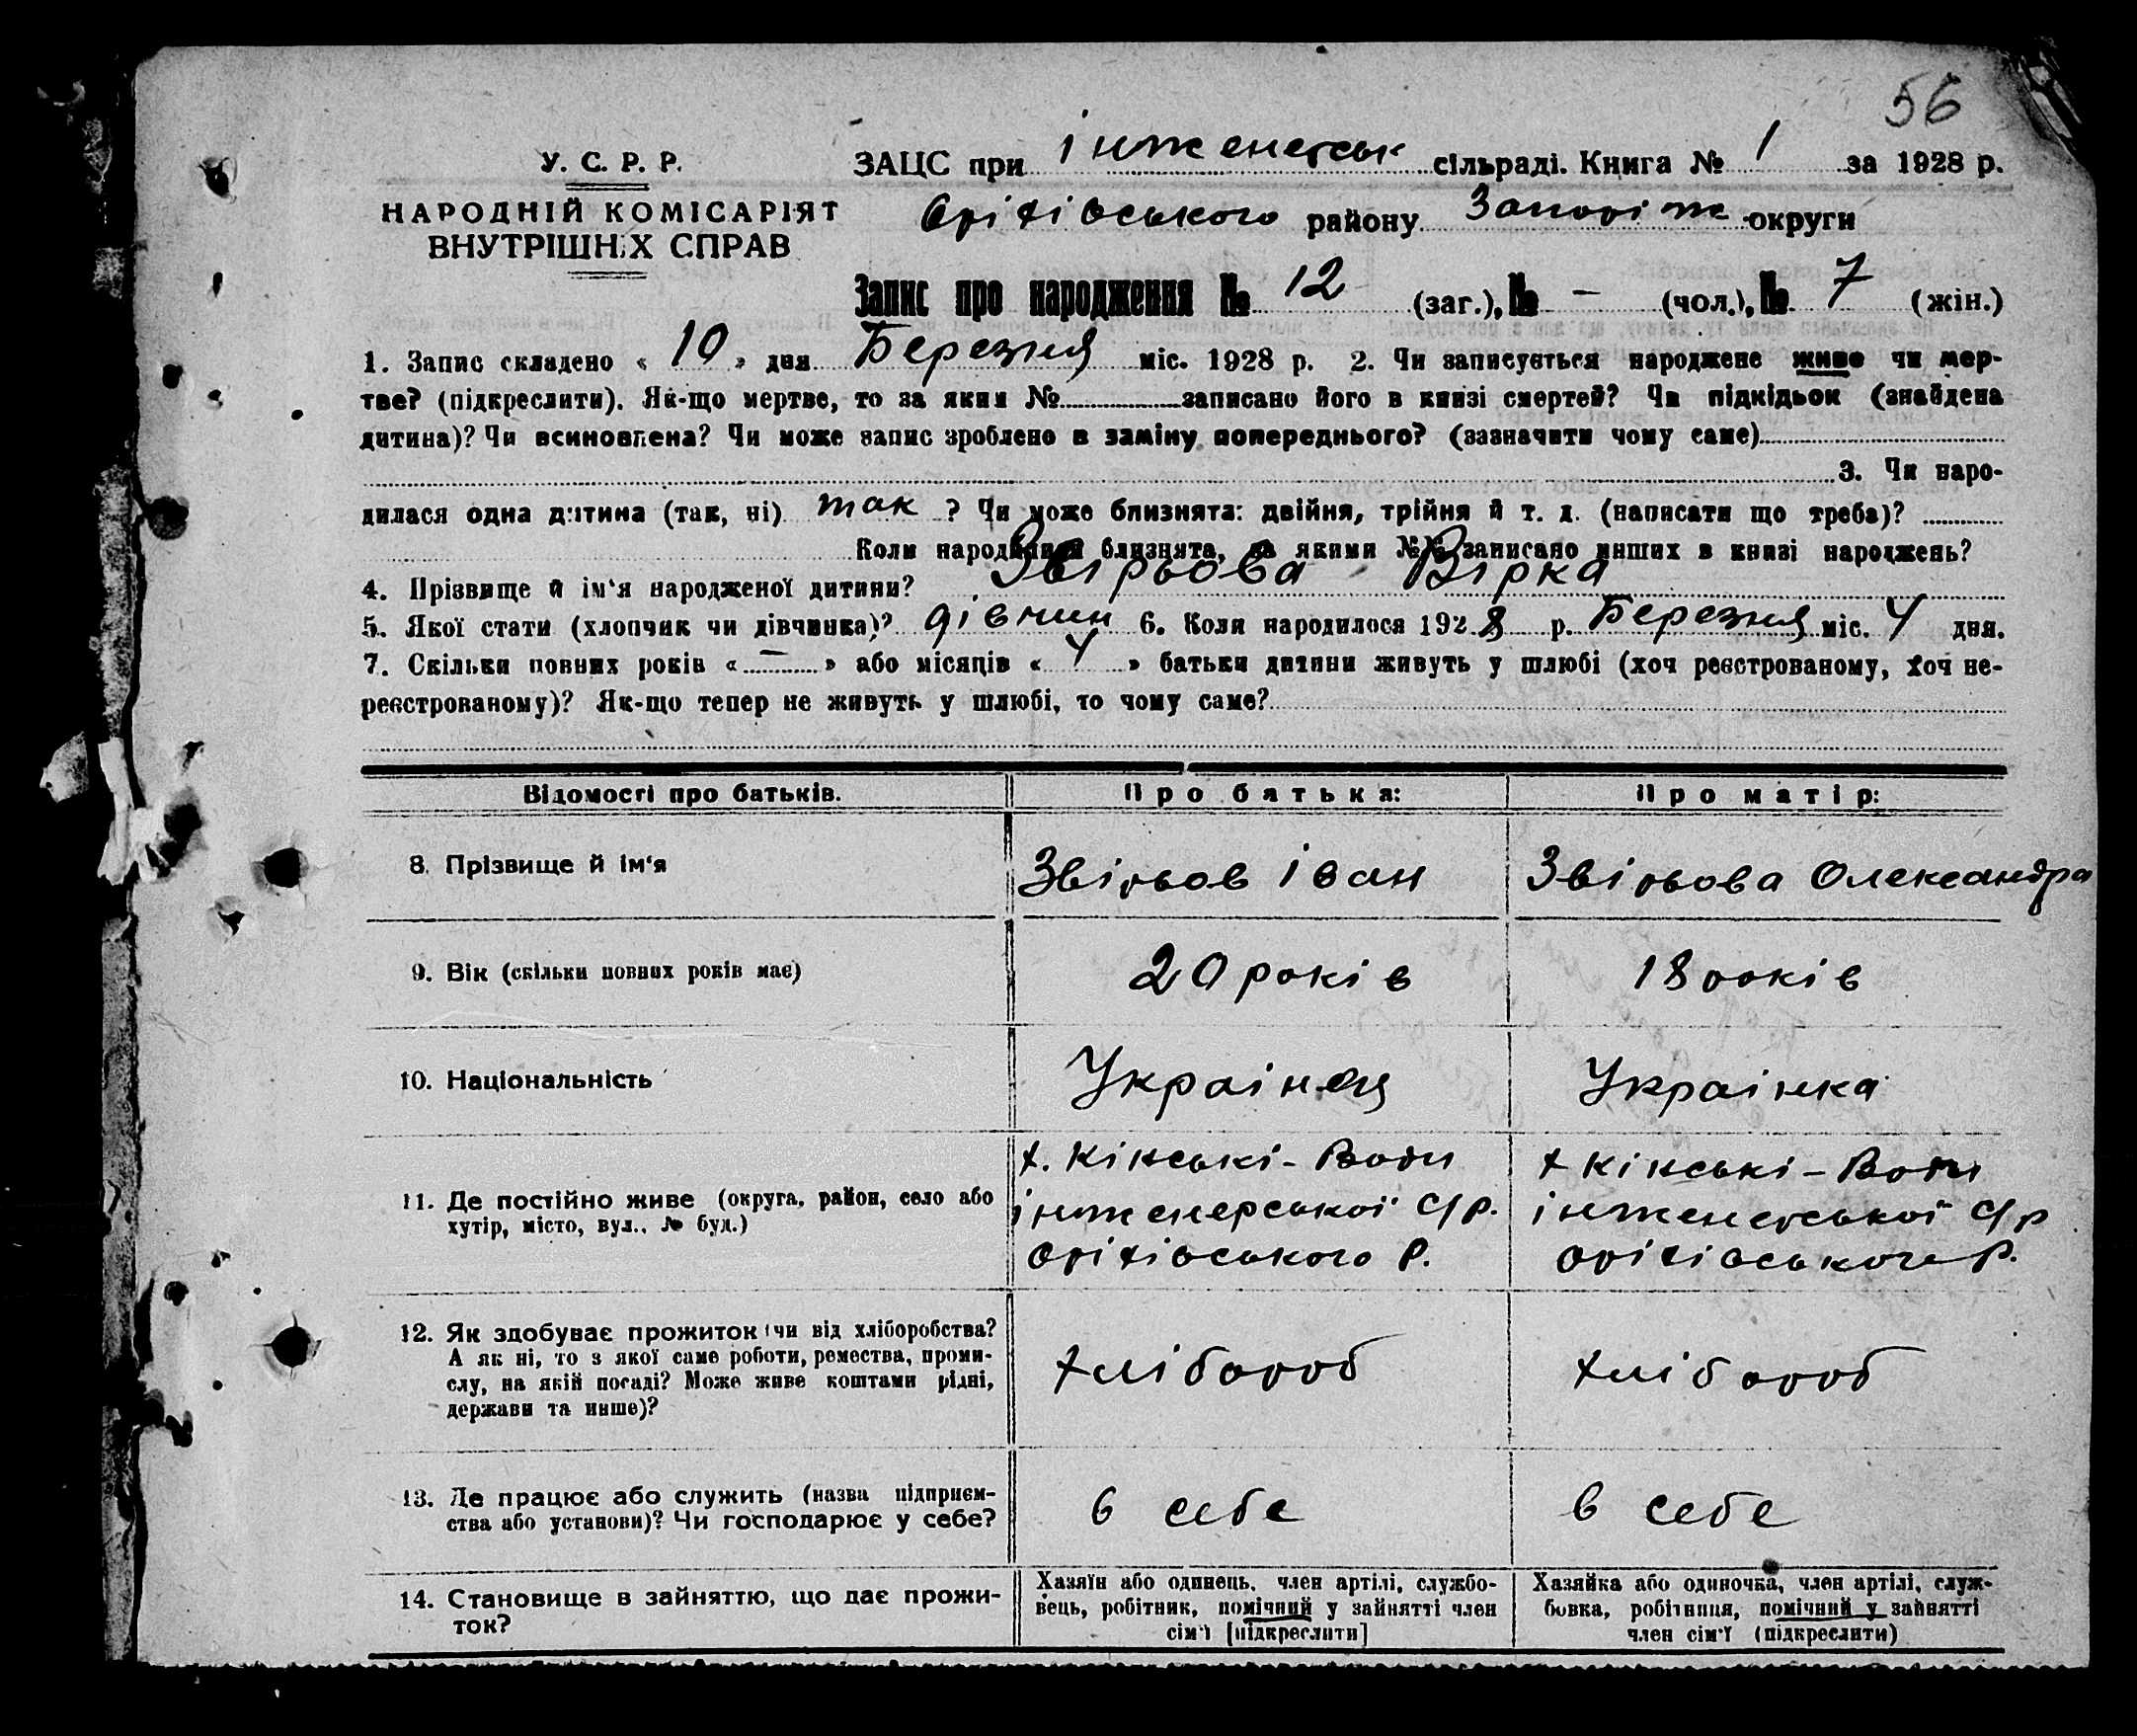 56
У. С. Р. Р.
НАРОДНІЙ КОМІСАРІЯТ
ВНУТРІШНІХ СПРАВ
ЗАЦС при інженерськ сільраді. Книга № 1 за 1928 р.
Оріхівського району Запоріж округи
Запис про народження № 12 (заг.), № - (чол.), № 7 (жін.)
1. Запис складено « 10 » дня Березня міс. 1928 р. 2. Чи записується народжене живе чи мер-
тве? (підкреслити). Як-що мертве, то за яким № записано його в книзі смертей? Чи підкідьок (знайдена
дитина)? Чи всиновлена? Чи може запис зроблено в заміну попереднього? (зазначити чому саме)
3. Чи наро-
дилася одна дитина (так, ні) так ? Чи може близнята: двійня, трійня й т. д. (написати що треба)?
Коли народилися близнята, за якими №№ записано инших в книзі народжень?
4. Прізвище й ім'я народженої дитини? Звірьова Вірка
5. Якої стати (хлопчик чи дівчинка)? дівчин 6. Коли народилося 1928 р. Березня міс. 4 дня.
7. Скільки повних років « — » або місяців « 4 » батьки дитини живуть у шлюбі (хоч реєстрованому, хоч не-
реєстрованому)? Як-що тепер не живуть у шлюбі, то чому саме?
Відомості про батьків. Про батька: Про матір:
8. Прізвище й ім'я Звірьов Іван Звірьова Олександра
9. Вік (скільки повних років має) 20 років 18 років
10. Національність Українец Українка
11. Де постійно живе (округа, район, село або
хутір, місто, вул., № буд.)
х. Кінські-Води
інженерської С/р.
Оріхівського Р.
х Кінські-Води
інженерської С/р
Оріхівського Р.
12. Як здобуває прожиток (чи від хліборобства?
А як ні, то з якої саме роботи, ремества, проми-
слу, на якій посаді? Може живе коштами рідні,
держави та инше)?
хлібороб
хлібороб
13. Де працює або служить (назва підприєм-
ства або установи)? Чи господарює у себе?
в себе
в себе
14. Становище в зайняттю, що дає прожи-
ток?
Хазяїн або одинець, член артілі, службо-
вець, робітник, помічний у зайнятті член
сім'ї [підкреслити]
Хазяйка або одиночка, член артілі, служ-
бовка, робітниця, помічний у зайнятті
член сім'ї (підкреслити)